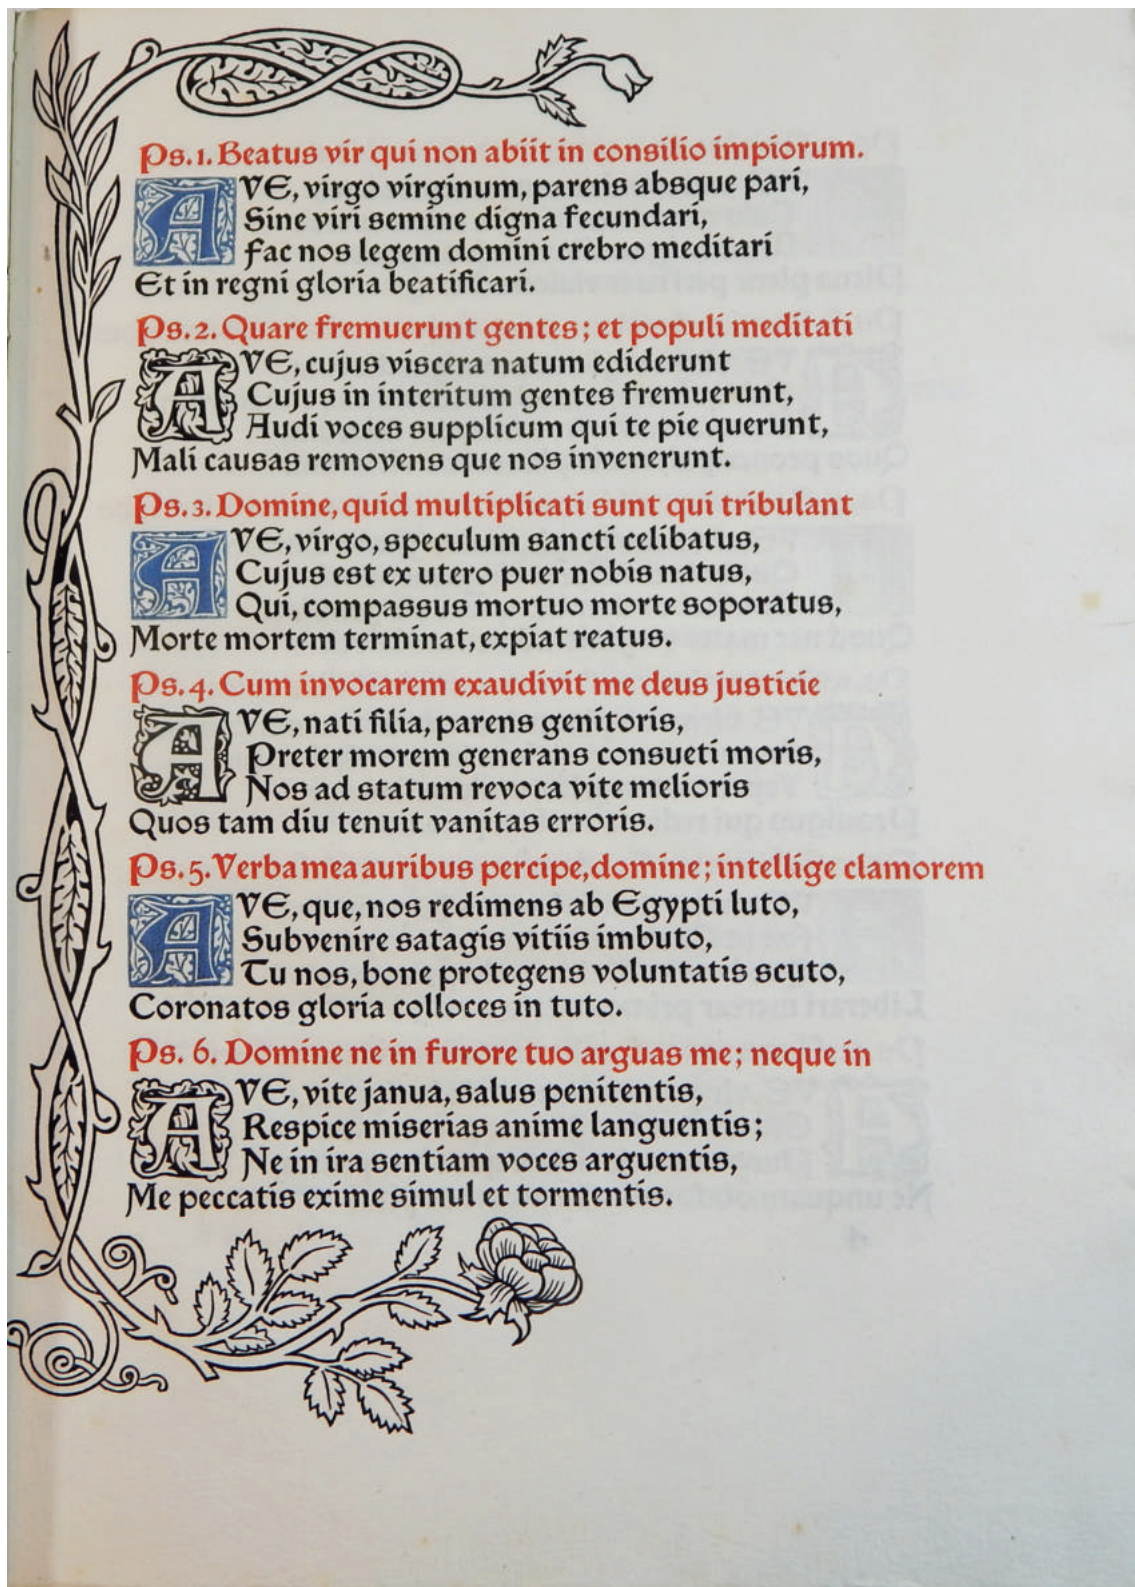 Ps. 1. Beatus vir qui non abiit in consilio impiorum.
AVE, virgo virginum, parens absque pari,
Sine viri semine digna fecundari,
Fac nos legem domini crebro meditari
Et in regni gloria beatificari.
Ps. 2. Quare fremuerunt gentes; et populi meditati
AVE, cujus viscera natum ediderunt
Cujus in interitum gentes fremuerunt,
Audi voces supplicum qui te pie querunt,
Mali causas removens que nos invenerunt.
Ps. 3. Domine, quid multiplicati sunt qui tribulant
AVE, virgo, speculum sancti celibatus,
Cujus est ex utero puer nobis natus,
Qui, compassus mortuo morte soporatus,
Morte mortem terminat, expiat reatus.
Ps. 4. Cum invocarem exaudivit me deus justicie
AVE, nati filia, parens genitoris,
Preter morem generans consueti moris,
Nos ad statum revoca vite melioris
Quos tam diu tenuit vanitas erroris.
Ps. 5. Verba mea auribus percipe, domine; intellige clamorem
AVE, que, nos redimens ab Egypti luto,
Subvenire satagis vitiis imbuto,
Tu nos, bone protegens voluntatis scuto,
Coronatos gloria colloces in tuto.
Ps. 6. Domine ne in furore tuo arguas me; neque in
AVE, vite janua, salus penitentis,
Respice miserias anime languentis;
Ne in ira sentiam voces arguentis,
Me peccatis exime simul et tormentis.